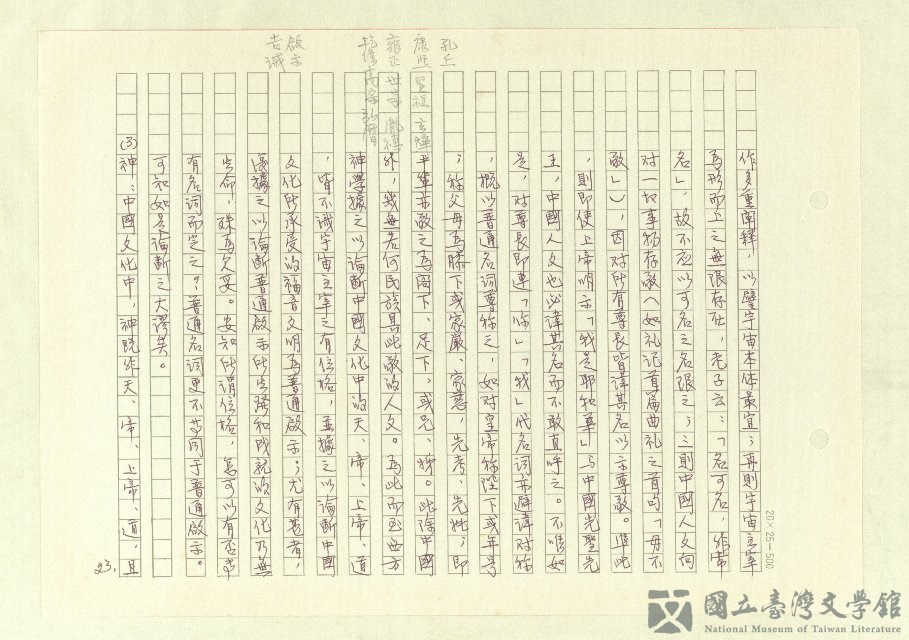 作多重闡釋，以譬宇宙本体最宜；再則宇宙主宰
為形而上之無限存在，老子云：「名可名，非常
名」，故不以可名之名限之；三則中國人文向
對一切事物存敬（如礼記首篇曲礼之首句「毋不
敬」），因对所有尊長皆諱其名以示尊敬。準此
，則即使上帝明示「我是耶和華」与中國先聖先
王，中國人文也必諱其名而不敢直呼之。不唯如
是，对尊長即連「你」「我」代名詞亦避諱对称
，概以普通名詞尊称之，如对皇帝称陛下或年号
；称父母為膝下或家嚴、家慈，先考、先妣；即
平輩亦敬之為閣下、足下，或兄、姊。此除中國
外，幾無若何民族具此敬的人文。為此而至西方
神學據之以論斷中國文化中的天、帝、上帝、道
，皆不識宇宙主宰之有位格，並據之以論斷中國
文化所承受的福音文明為普通啟示；尤有甚者，
還據之以論斷普通啟示所生潛和成就的文化乃無
生命，殊為欠妥。安知所謂位格，怎可以有否專
有名詞而定之？普通名詞更不等同于普通啟示。
可知如是論斷之大謬矣。
(3)神：中國文化中，神既作天、帝、上帝、道，且
孔丘
康熙 聖祖 玄燁
雍正 世宗 胤禛
乾隆 高宗 弘曆
啟示
告誡
23.
20×25=500
國立臺灣文學館
National Museum of Taiwan Literature